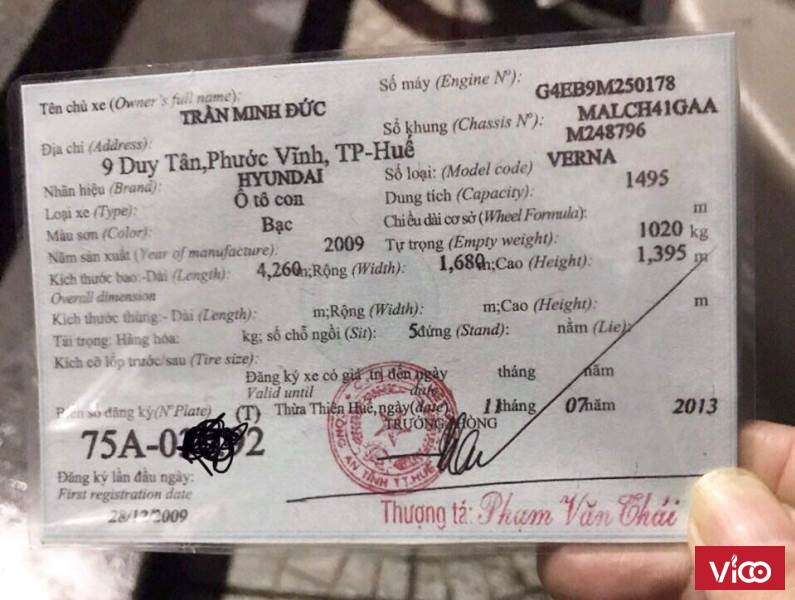 Tên chủ xe (Owner's full name): TRẦN MINH ĐỨC
Địa chỉ (Address): 9 Duy Tân,Phước Vĩnh, TP-Huế
Nhãn hiệu (Brand): HYUNDAI
Loại xe (Type): Ô tô con
Màu sơn (Color): Bạc
Năm sản xuất (Year of manufacture): 2009
Số máy (Engine Nº): G4EB9M250178
Số khung (Chassis Nº): MALCH41GAA
M248796
Số loại: (Model code) VERNA
Dung tích (Capacity): 1495
Chiều dài cơ sở (Wheel Formula): m
Tự trọng (Empty weight): 1020 kg
Kích thước bao:-Dài (Length): 4,260m;Rộng (Width): 1,680m;Cao (Height): 1,395 m
Overall dimension
Kích thước thùng:- Dài (Length): m;Rộng (Width): m;Cao (Height): m
Tải trọng: Hàng hóa: kg; số chỗ ngồi (Sit): 5đứng (Stand): nằm (Lie):
Kích cỡ lốp trước/sau (Tire size):
Đăng ký xe có giá trị đến ngày tháng năm
Valid until date
Biển số đăng ký(Nº Plate) (T) Thừa Thiên Huế,ngày(date) 11tháng 07năm 2013
TRƯỞNG PHÒNG
75A-0 92
Đăng ký lần đầu ngày:
First registration date
28/12/2009
AN TỈNH T.T.HUẾ
Thượng tá: Phạm Văn Thái
Vico